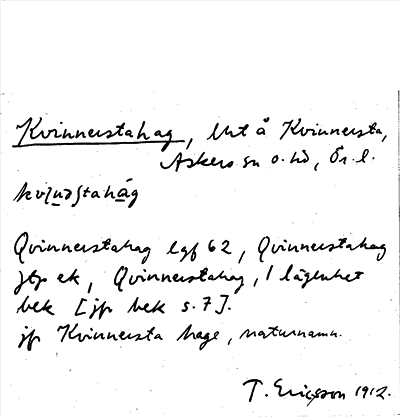 Kvinnerstahag, Unt å Kvinnersta,
Askers sn o. hd, Ör. l.
Qvinnerstahag lgf 62, Qvinnerstahag
jtp ek, Qvinnerstahag, 1 lägenhet
bek [jfr bek s. 7].
jfr Kvinnersta hage, naturnamn.
T. Ericsson 1912.